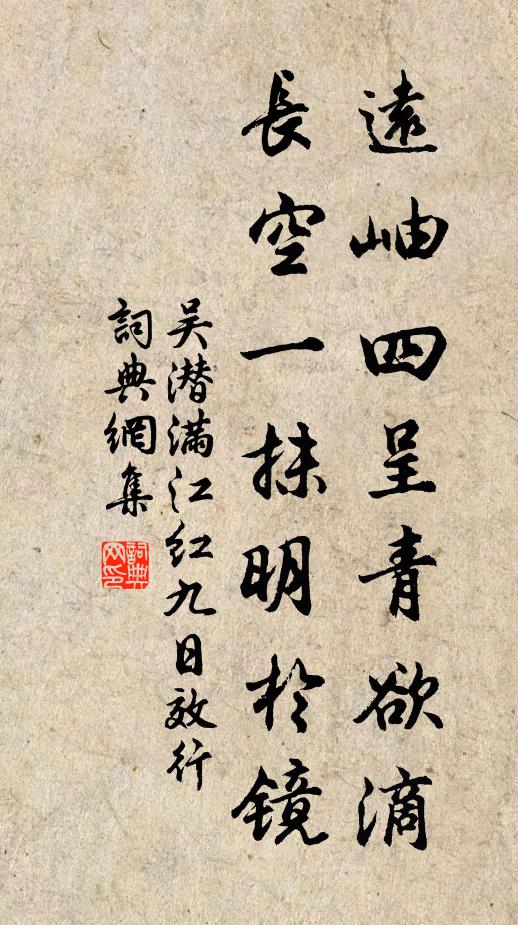 遠岫四呈青欲滴
長空一抹明於镜
吴潜满江红九日效行
詞典網集
詞典网印